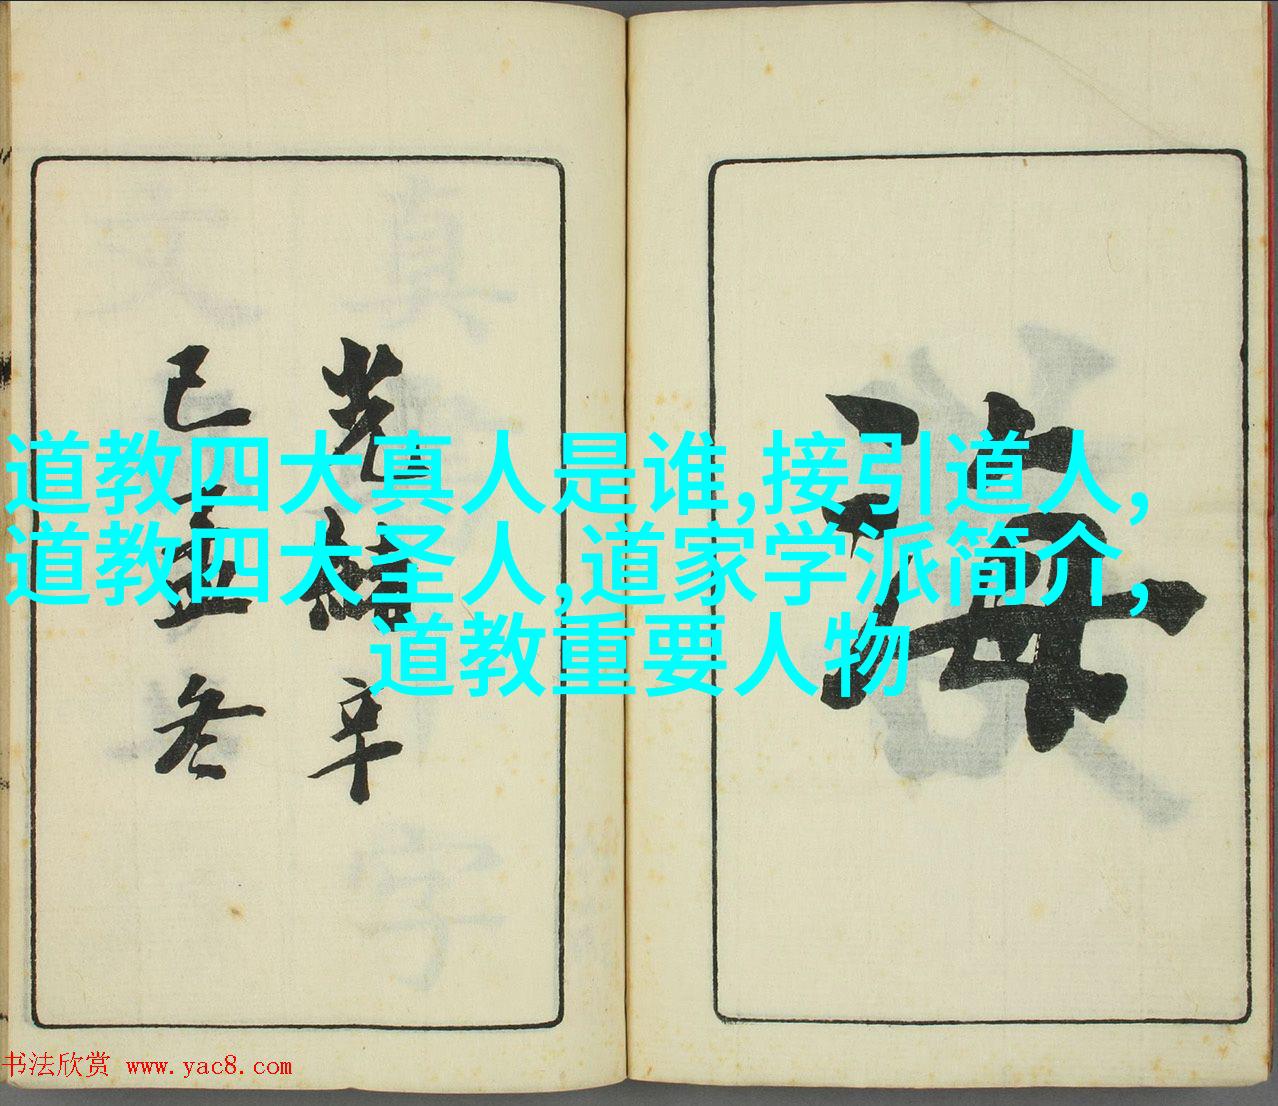 海
光緒辛
巳孟冬
道教四大真人是谁,接引道人,
道教四大圣人,道家学派简介,
道教重要人物
书法欣赏 www.yac8.com